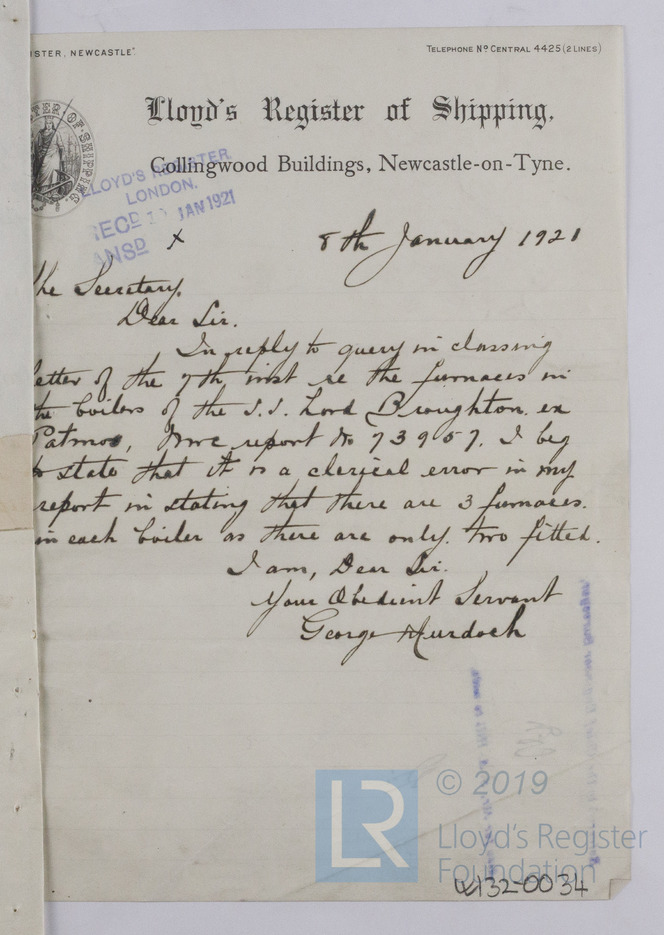 ISTER, NEWCASTLE".
TELEPHONE No CENTRAL 4425 (2 LINES)
Lloyd's Register of Shipping,
Collingwood Buildings, Newcastle-on-Tyne.
LLOYD'S REGISTER
LONDON.
RECD 10 JAN 1921
ANSD
x
8th January 1921
the Secretary,
Dear Sir.
In reply to query in classing
letter of the 7th inst re the furnaces in
the boilers of the S.S. Lord Broughton ex
Patmos, Nwc report No 73957. I beg
to state that it is a clerical error in my
report in stating that there are 3 furnaces
in each boiler as there are only two fitted.
I am, Dear Sir.
Your Obedient Servant
George Murdoch
LR
© 2019
Lloyd's Register
Foundation
W132-0034